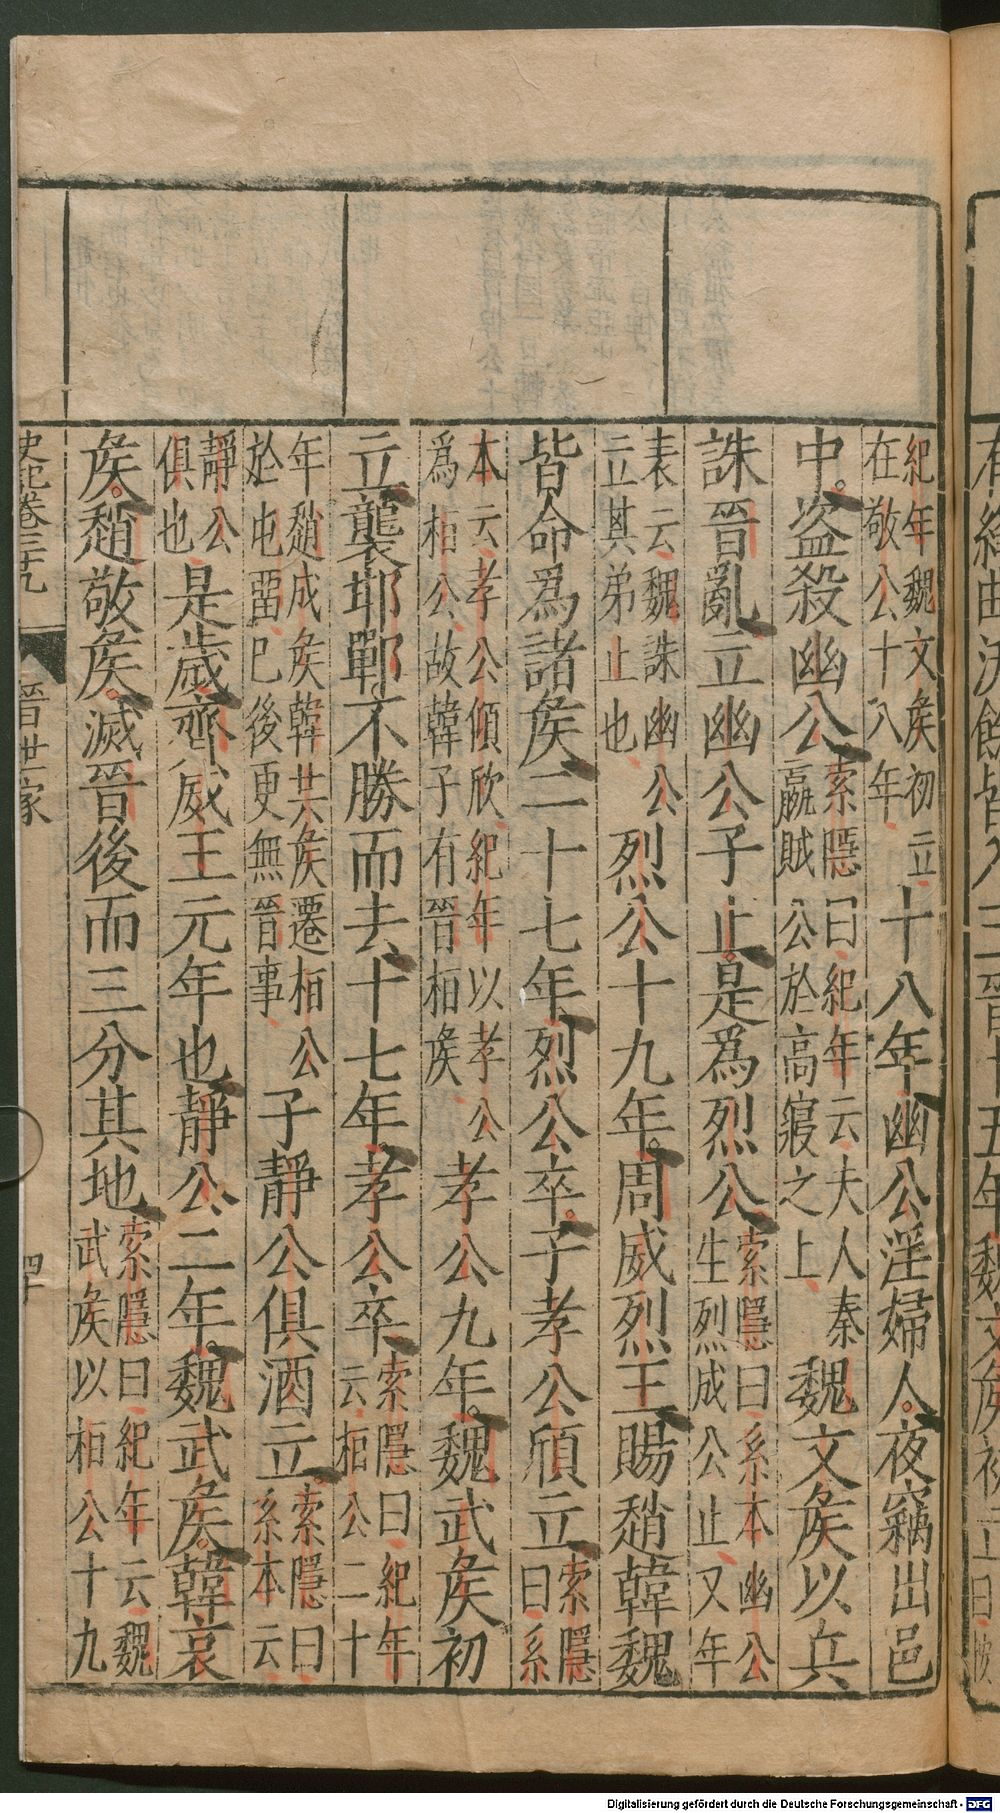 有絳曲沃餘皆入三晉十五年魏文矦初立
紀年魏文矦初立
在敬公十八年
十八年幽公淫婦人夜竊出邑
中盗殺幽公
索隱曰紀年云夫人秦
嬴賊公於高寢之上
魏文矦以兵
誅晉亂立幽公子止是爲烈公
索隱曰系本幽公
生烈成公止又年
表云魏誅幽公
立其弟止也
烈公十九年周威烈王賜趙韓魏
皆命爲諸矦二十七年烈公卒子孝公頎立
索隱
曰系
本云孝公傾欣紀年以孝公
爲桓公故韓子有晉桓矦
孝公九年魏武矦初
立襲邯鄲不勝而去十七年孝公卒
索隱曰紀年
云桓公二十
年趙成矦韓共矦遷桓公
於屯留已後更無晉事
子靜公俱酒立
索隱曰
系本云
靜公
俱也
是歲齊威王元年也靜公二年魏武矦韓哀
矦趙敬矦滅晉後而三分其地
索隱曰紀年云魏
武矦以桓公十九
史記卷三十九 晉世家 四十
Digitalisierung gefördert durch die Deutsche Forschungsgemeinschaft - DFG